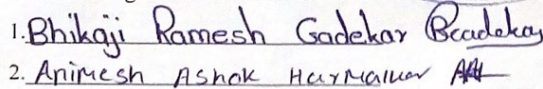 1. Bhikaji Ramesh Gadekar
2. Animesh Ashok Harmalkar